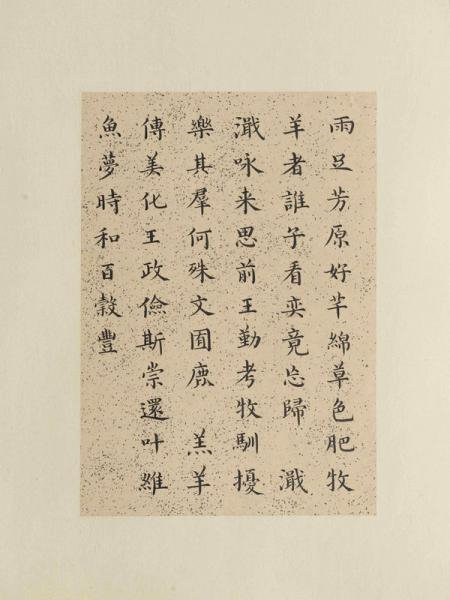 雨足芳原好芊綿草色肥牧
羊者誰子看奕竟忘歸　濈
濈咏来思前王勤考牧馴擾
樂其羣何殊文囿鹿　羔羊
傳美化王政儉斯崇還叶維
魚夢時和百穀豐